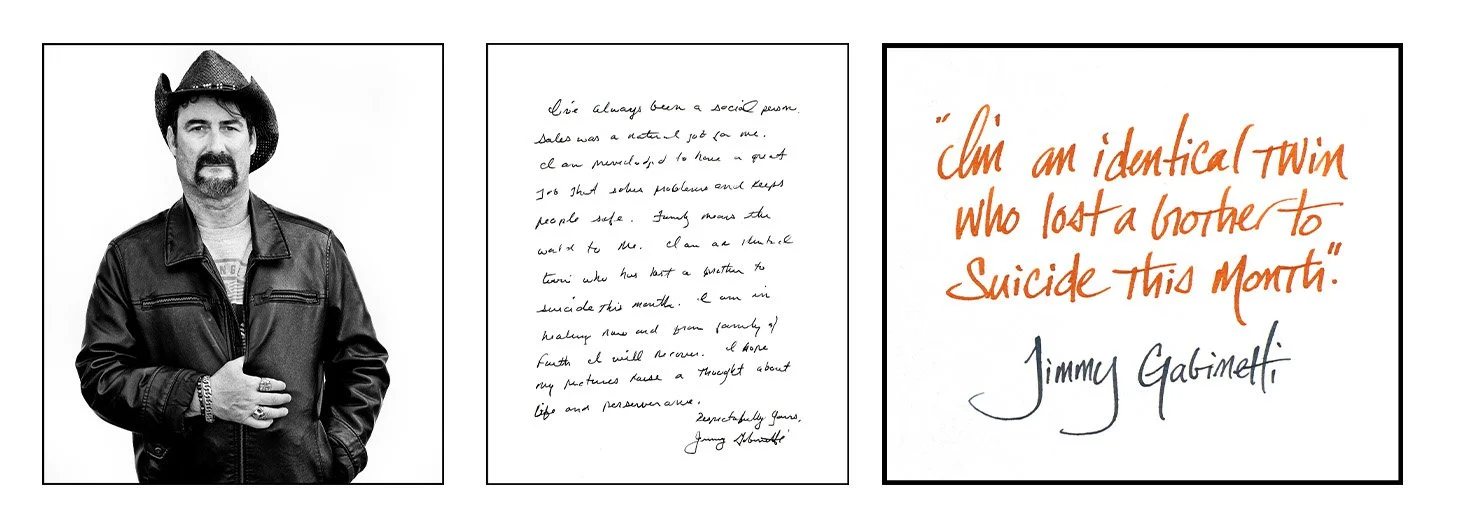 I've always been a social person.
Sales was a natural job for me.
I am priveledged to have a great
Job that solves problems and keeps
people safe. Family means the
world to me. I am an identical
twin who has lost a brother to
suicide this month. I am in
healing now and from family of
Faith I will recover. I hope
my pictures raise a thought about
life and perserverance.
Respectfully Yours,
Jimmy Gabinetti
"I'm an identical twin
who lost a brother to
Suicide this Month."
Jimmy Gabinetti